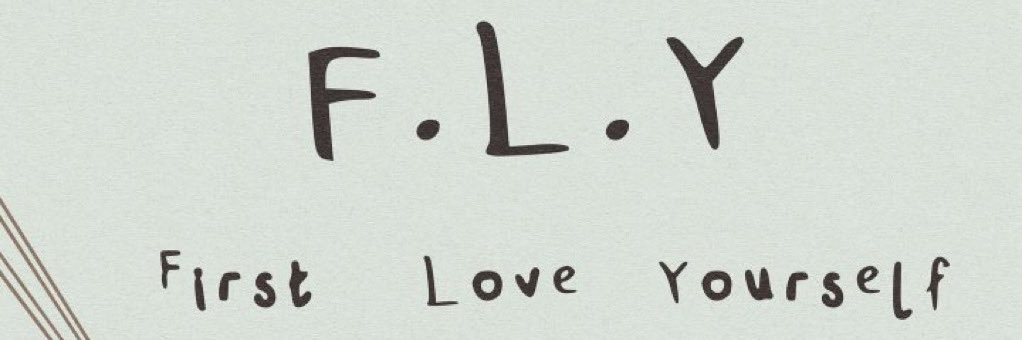 F.L.Y
First Love Yourself